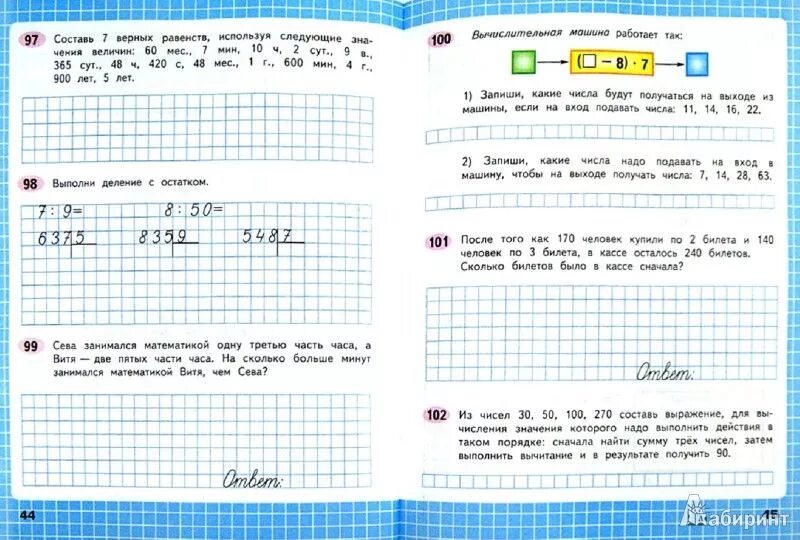 97 Составь 7 верных равенств, используя следующие зна-
чения величин: 60 мес., 7 мин, 10 ч, 2 сут., 9 в.,
365 сут., 48 ч, 420 с, 48 мес., 1 г., 600 мин, 4 г.,
900 лет, 5 лет.
98 Выполни деление с остатком.
7 : 9= 8 : 50=
637 5 835 9 548 7
99 Сева занимался математикой одну третью часть часа, а
Витя — две пятых части часа. На сколько больше минут
занимался математикой Витя, чем Сева?
Ответ:
44
100 Вычислительная машина работает так:
(□ – 8) · 7
1) Запиши, какие числа будут получаться на выходе из
машины, если на вход подавать числа: 11, 14, 16, 22.
2) Запиши, какие числа надо подавать на вход в
машину, чтобы на выходе получать числа: 7, 14, 28, 63.
101 После того как 170 человек купили по 2 билета и 140
человек по 3 билета, в кассе осталось 240 билетов.
Сколько билетов было в кассе сначала?
Ответ:
102 Из чисел 30, 50, 100, 270 составь выражение, для вы-
числения значения которого надо выполнить действия в
таком порядке: сначала найти сумму трёх чисел, затем
выполнить вычитание и в результате получить 90.
45
Лабиринт